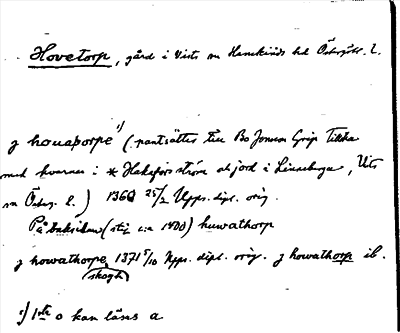 Hovetorp, gård i Vists sn Hanekinds hd Östergötl. l.
j houaþorpe 1) (pantsättes till Bo Jonsson Grip Tillika
med kvarnar i * Hakefors ström och jord i Linneberga, Vists
sn Österg. l.) 1360 25/2 Upps. dipl. orig.
På baksidan (stil c:a 1400) huwathorp
j howathorpe 1371 5/10 Upps. dipl. orig. j howathorp ib.
(skogh)
1) 1sta o kan läsas a